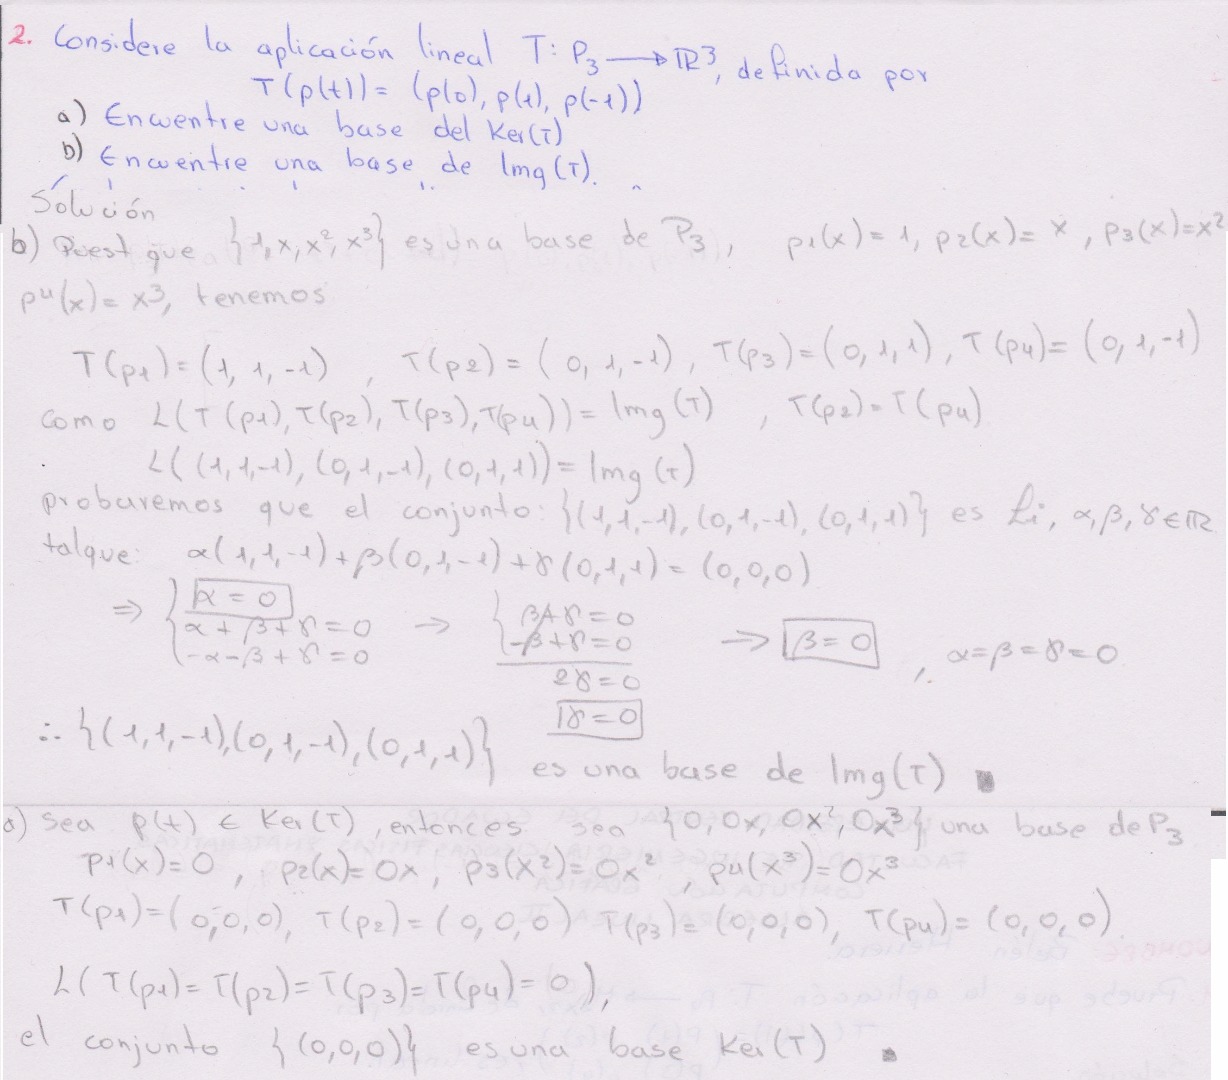 2. Considere la aplicación lineal T: P₃ → ℝ³, definida por
T(p(t)) = (p(0), p(1), p(-1))
a) Encuentre una base del Ker(T)
b) Encuentre una base de Img(T).
Solución
b) Puest que {1, x, x², x³} es una base de P₃, p1(x) = 1, p2(x) = x, p3(x) = x²
p4(x) = x³, tenemos
T(p1) = (1, 1, -1) , T(p2) = (0, 1, -1), T(p3) = (0, 1, 1), T(p4) = (0, 1, -1)
como L(T(p1), T(p2), T(p3), T(p4)) = Img(T) , T(p2) = T(p4)
L((1,1,-1), (0,1,-1), (0,1,1)) = Img(T)
probaremos que el conjunto: {(1,1,-1), (0,1,-1), (0,1,1)} es Li, α, β, γ ∈ ℝ
talque: α(1,1,-1) + β(0,1,-1) + γ(0,1,1) = (0,0,0)
⇒ { α = 0 → { β + γ = 0 → β = 0 , α = β = γ = 0
α + β + γ = 0 -β + γ = 0
-α - β + γ = 0 2γ = 0
1γ = 0
∴ {(1,1,-1), (0,1,-1), (0,1,1)} es una base de Img(T)
a) Sea p(t) ∈ Ker(T), entonces sea {0, 0x, 0x², 0x³} una base de P₃
p1(x) = 0 , p2(x) = 0x , p3(x²) = 0x² , p4(x³) = 0x³
T(p1) = (0,0,0), T(p2) = (0,0,0) T(p3) = (0,0,0), T(p4) = (0,0,0)
L(T(p1) = T(p2) = T(p3) = T(p4) = 0),
el conjunto {(0,0,0)} es una base Ker(T)